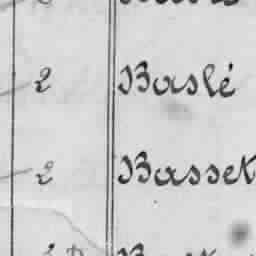 2 Baslé
2 Basset